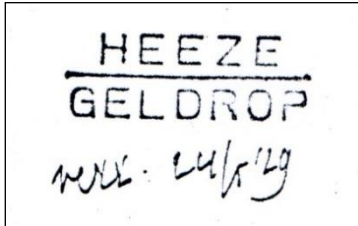 HEEZE
GELDROP
verz. 24/5'29